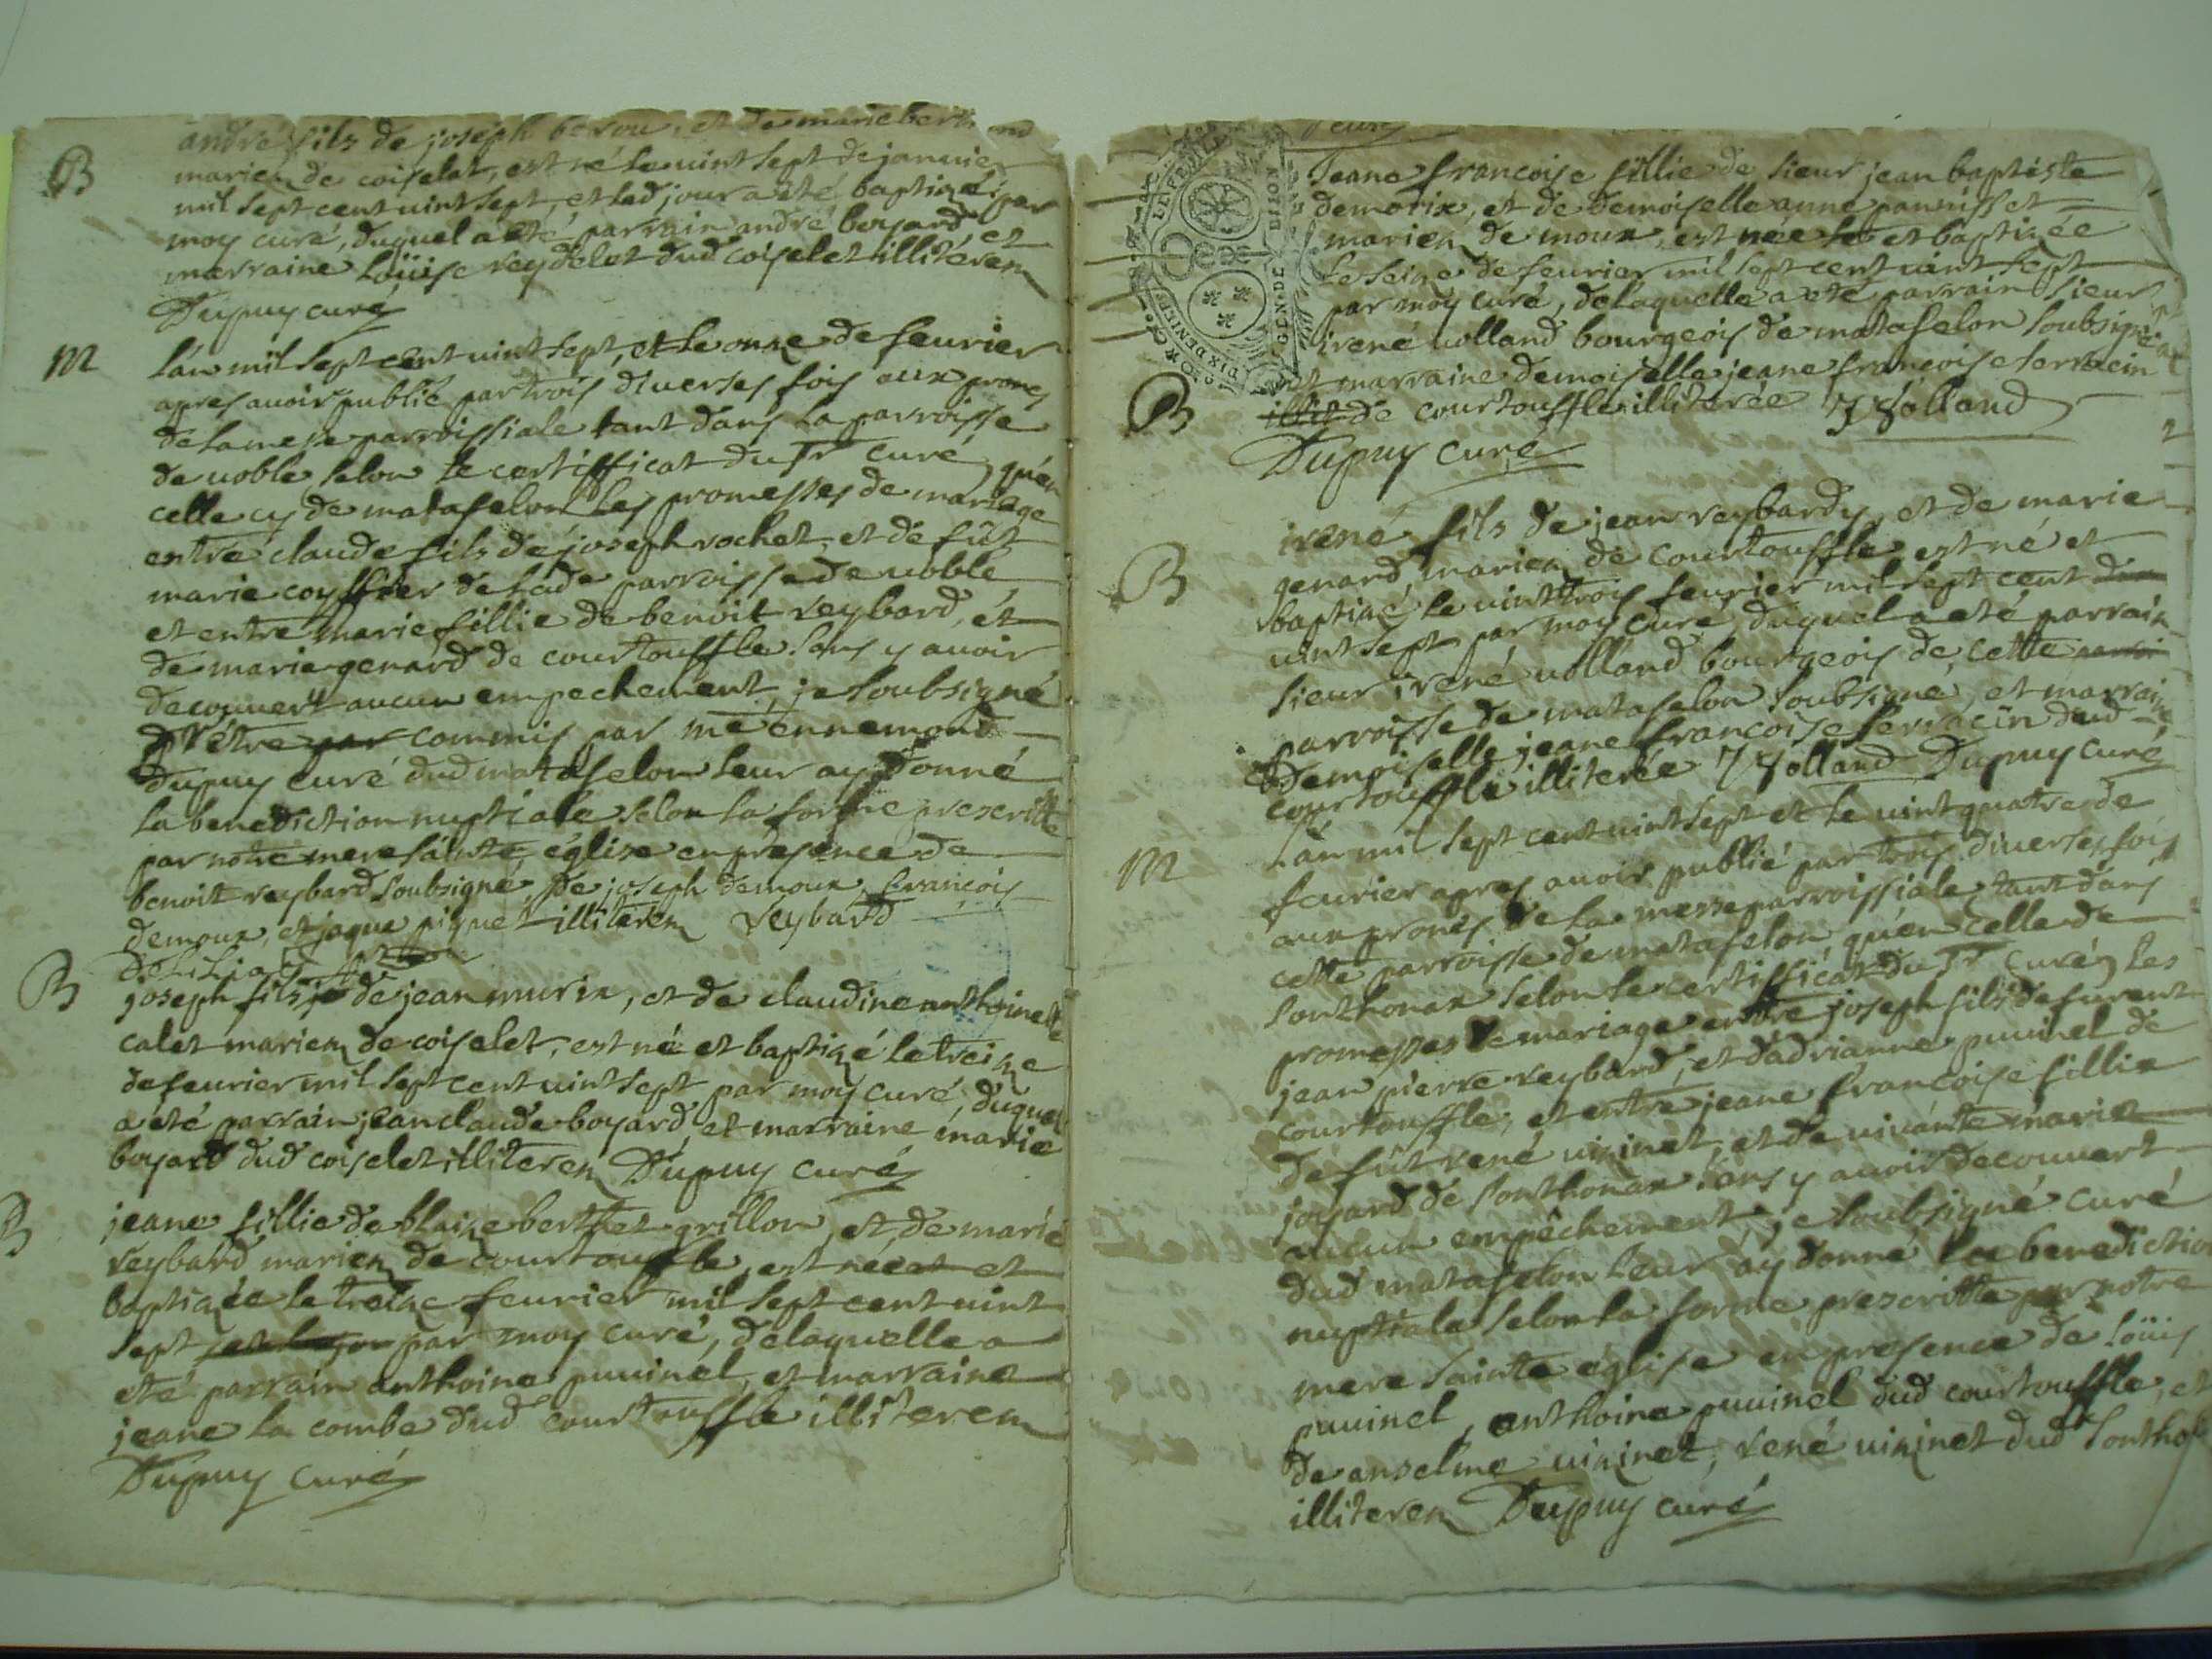 B
andré fils de joseph berou, et de marie
mariez de coiselet, est né le vint sept de janvier
mil sept cent vint sept, et led jour a été baptizé par
moy curé, duquel a été parrain andré boyard et
marraine Loüise reydelet dud coiselet illiterez
Dupuy curé
M
lán mil sept cent vint sept, et le onze de feurier
apres auoir publié par trois diuerses fois aux prones
de la messe parroissiale tant dans la parroisse
de uoble selon le certifficat du Sr curé, qu'en
celle cy de matafelon les promesses de mariage
entre claude fils de joseph rochet, et de fût
marie coyffier de lad parroisse de uoble
et entre marie fillie de benoit reybard, et
de marie genard de courtouffle sans y auoir
decouuert aucun empechement, je soubsigné
prétre par commis par me ennemond
Dupuy curé dud matafelon leur ay donné
la benediction nuptiale selon la forme prescritte
par notre mere sainte église en presence de
benoit reybard soubsigné, de joseph demoux, françois
demoux, et jaque piquet illiterez Reybard
B
joseph fils de jean murix, et de claudine anthoinette
calet mariez de coiselet, est né et baptizé le treize
de feurier mil sept cent vint sept par moy curé, duquel
a été parrain jean claude boyard, et marraine marie
boyard dud coiselet illiterez Dupuy curé
B
jeane fillie de blaize berthet grillon, et de marie
reybard mariez de courtouffle, est née et et
baptizée le treize feurier mil sept cent uint
sept par moy curé, de laquelle a
eté parrain anthoine puuinel, et marraine
jeane la combe dud courtouffle illiterez
Dupuy curé
LE FEUILLE
GEN. DE DIJON
DIX DENIERS
B
Jeane francoise fillie de sieur jean baptiste
demorix, et de demoiselle anne pannisset
mariez de moux, est née le et baptizée
le seize de feurier mil sept cent uint sept
par moy curé, de laquelle a eté parrain sieur
irené uolland bourgeois de matafelon soubsigné
et marraine demoiselle jeane francoise serracin
illit de courtouffle illiterée J Volland
Dupuy curé
B
irené fils de jean reybardy, et de marie
genard mariez de courtouffle est né et
baptizé le uint trois feurier mil sept cent dix
uint sept par moy curé, duquel a eté parrain
sieur irené uolland bourgeois de cette
parroisse de matafelon soubsigné, et marraine
Demoiselle jeane francoise serracin dud
courtouffle illiterée J Volland Dupuy curé
M
Lán mil sept cent uint sept et le uint quatre de
feurier apres auoir publié par trois diuerses fois
aux prones de la messe parroissiale, tant dans
cette parroisse de matafelon, qu'en celle de
sonthonax selon le certifficat du Sr curé, les
promesses de mariage entre joseph fils de furent
jean pierre reybard, et d'adrianne puuinel de
courtouffle, et entre jeane francoise fillie
de fût rené uininet, et de uiuante marie
joyard de sonthonax sans y auoir decouuert
aucun empêchement, je soubsigné curé
dud matafelon leur ay donné la benediction
nuptiale selon la forme prescritte par notre
mere sainte église en presence de loüis
puuinel, anthoine puuinel dud courtouffle, et
de anselme uininet, rené uininet dud
illiterez Dupuy curé